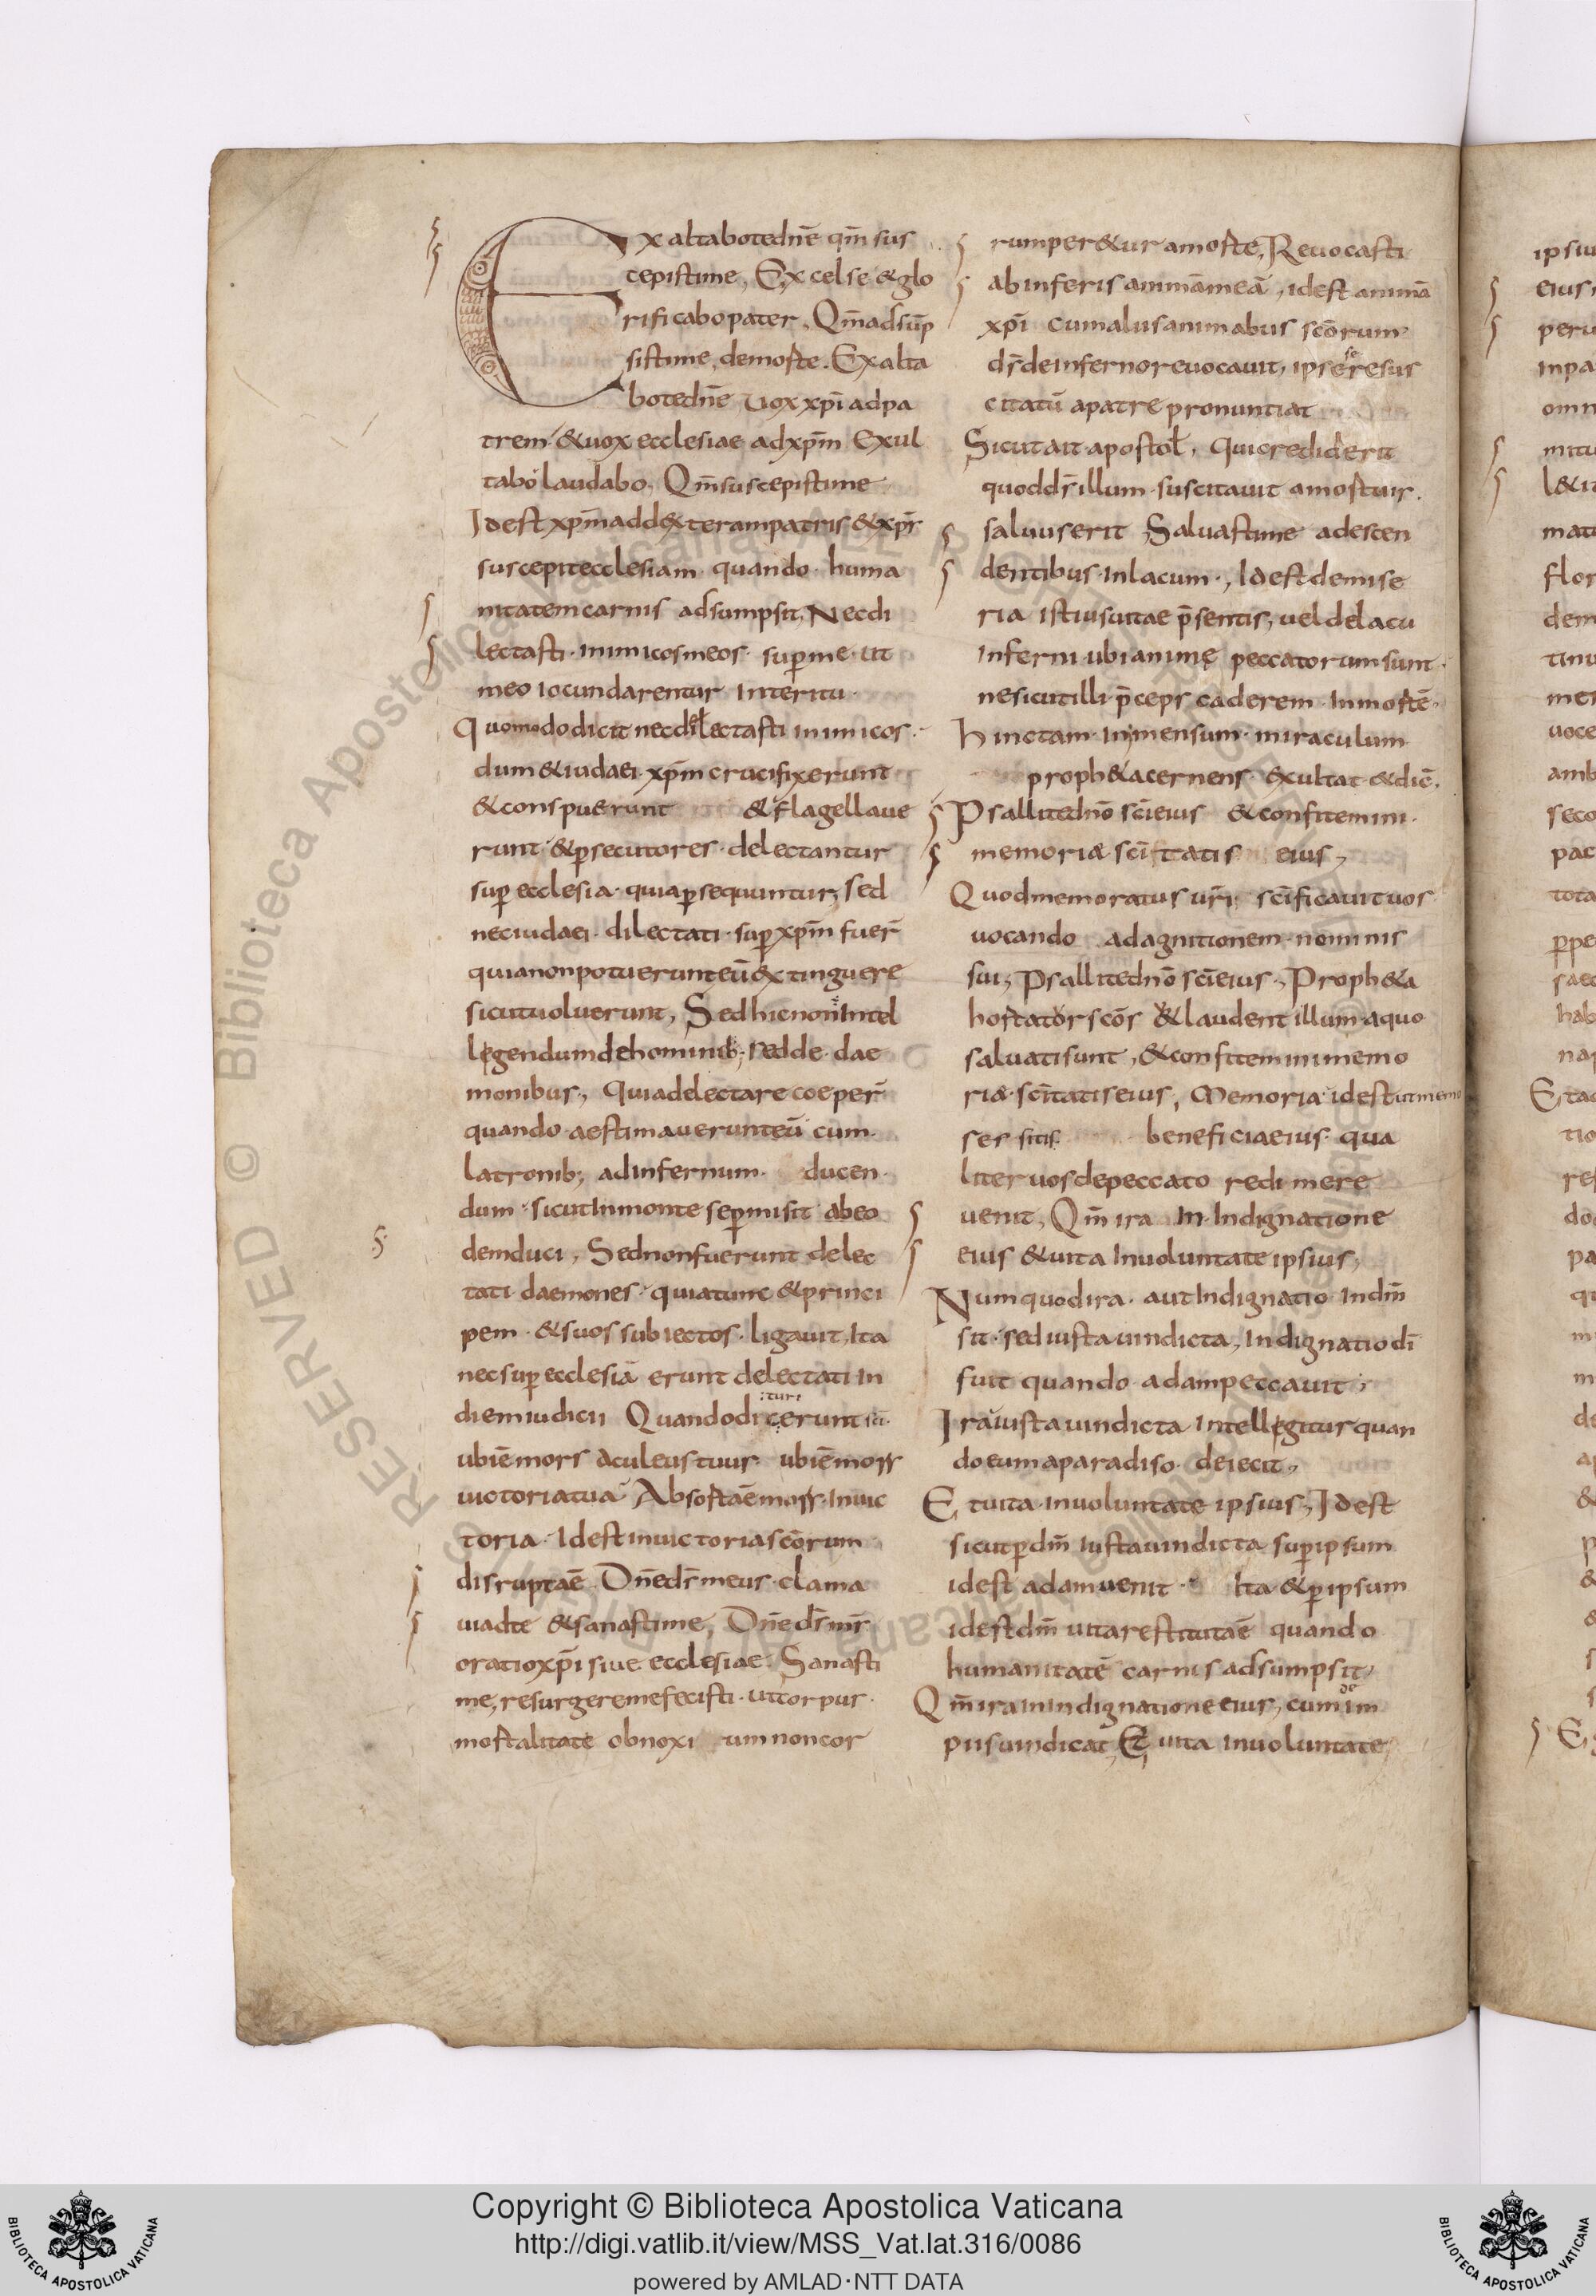 Exaltabo te dnē qm̄ sus
cepisti me, Excelse & glo
rificabo pater, Qm̄ adsūp
sisti me, de morte. Exalta
bo te dnē Uox xp̄i ad pa
trem & uox ecclesiae ad xpm̄ Exul
tabo laudabo, Qm̄ suscepisti me
Idest xpm̄ ad dexteram patris & xpr̄
suscepit ecclesiam quando huma
nitatem carnis adsumpsit, Nec di
lectasti inimicos meos sup me ut
meo iocundarentur Interitu
Quomodo dicit nec delectasti inimicos
dum & iudaei xpm̄ crucifixerunt
& conspuerunt & flagellaue
runt & psecutores delectantur
sup ecclesia quia psequuntur, sed
nec iudaei dilectati sup xpm̄ fuer̄
quia non potuerunt eū extinguere
sicut uoluerunt, Sed hic non ē Intel
legendum de hominib; sed de dae
monibus, Quia delectare coeper̄
quando aestimauerunt eū cum
latronib; ad infernum ducen
dum sicut In monte se pmisit ab eo
dem duci, Sed non fuerunt delec
tati daemones quia tunc & princi
pem & suos subiectos ligauit, Ita
nec sup ecclesiā erunt delectati In
diem iudicii Quando dicerunt
turi
ubi ē mors aculeus tuus ubi ē mors
uictoria tua Absorta ē mors In uic
toria Idest in uictoria scōrum
disrupta ē Dn̄e ds̄ meus clama
ui ad te & sanasti me, Dn̄e ds̄ ms̄
oratio xp̄i siue ecclesiae Sanasti
me, resurgere me fecisti ut corpus
mortalitate obnoxium non cor
rumper&ur a morte, Reuocasti
ab inferis animā meā, idest animā
xp̄i cum alus animabus scōrum
ds̄ de inferno reuocauit, ipse resus
se
citatū a patre pronuntiat
Sicut ait apostol, Qui crediderit
quod ds̄ illum suscitauit a mortuis
saluus erit Saluasti me a descen
dentibus In lacum, Idest de mise
ria istius uitae p̄sentis, uel de lacu
Inferni ubi animę peccatorum sunt
ne sicut illi p̄ceps caderem In mortē
hinc tam Inmensum miraculum
proph&a cernens exultat & dic̄
Psallite dnō scī eius & confitemini
memoriæ scītatis eius,
Quod memoratus ur̄i scīficauit uos
uocando ad agnitionem nominis
sui, Psallite dnō scī eius, Proph&a
hortator scōs & laudent illum a quo
saluati sunt, & confitemini memo
riæ scītatis eius, Memoria idest ut memo
res sitis beneficia eius qua
liter uos de peccato redimere
uenit, Qm̄ ira In Indignatione
eius & uita In uoluntate ipsius,
Num quod ira aut Indignatio In dm̄
sit sed iusta uindicta, Indignatio dī
fuit quando adam peccauit,
Ira iusta uindicta Intellegitur quan
do eum a paradiso deiecit,
Et uita In uoluntate ipsius, Idest
sicut p dm̄ iusta uindicta sup ipsum
idest adam uenit Ita & p ipsum
idest dm̄ uita restituta ē quando
humanitatē carnis adsumpsit,
Qm̄ ira in Indignatione eius, cum im
de
piis uindicat, Et uita In uoluntate
Copyright © Biblioteca Apostolica Vaticana
http://digi.vatlib.it/view/MSS_Vat.lat.316/0086
powered by AMLAD·NTT DATA